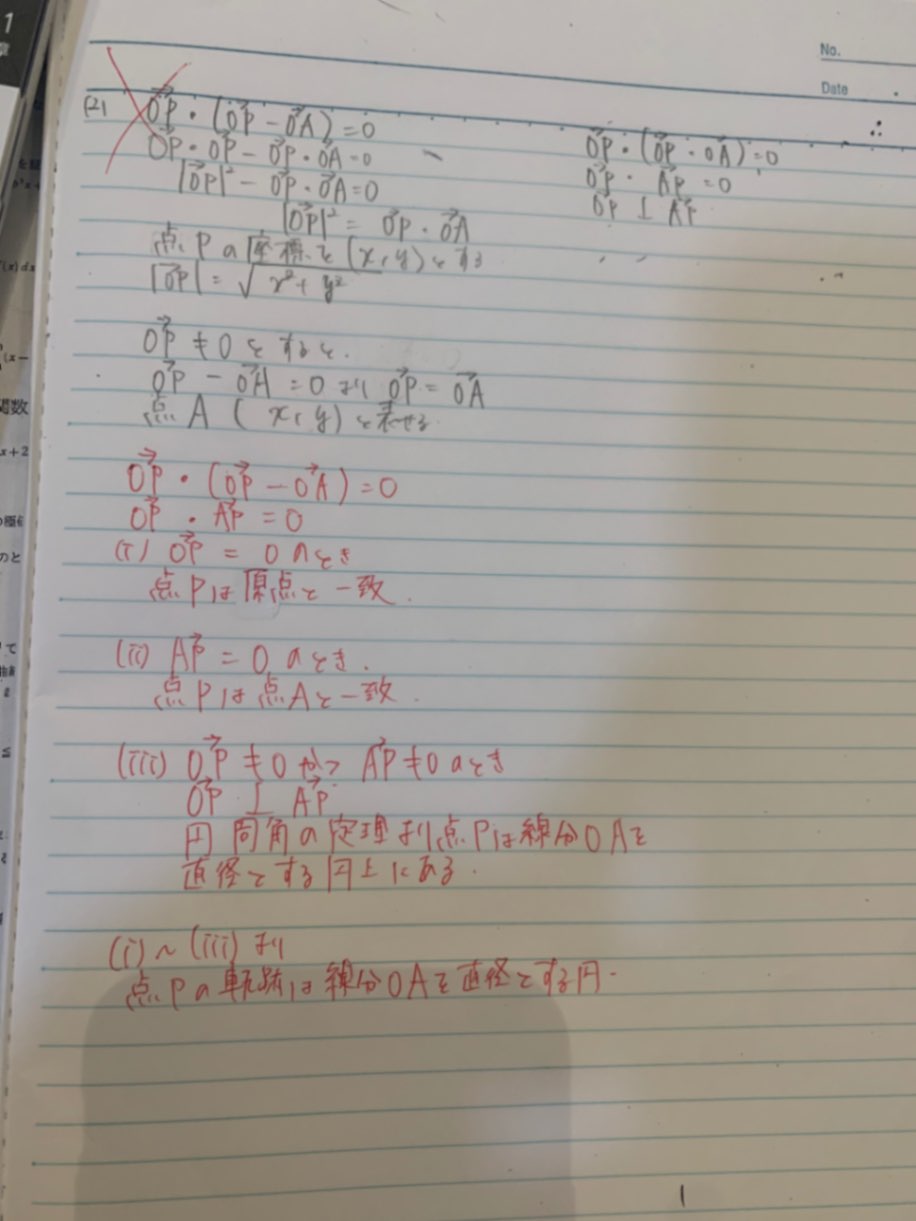 No.
Date
(2) OP・(OP - OA) = 0
OP・OP - OP・OA = 0
|OP|² - OP・OA = 0
|OP|² = OP・OA
点Pの座標を(x, y)とする
|OP| = √x²+y²
OP・(OP・OA) = 0
OP・AP = 0
OP ⊥ AP
OP ≠ 0 とすると、
OP - OA = 0 より OP = OA
点A (x, y) と表せる
OP・(OP - OA) = 0
OP・AP = 0
(i) OP = 0 のとき
点Pは原点と一致.
(ii) AP = 0 のとき.
点Pは点Aと一致.
(iii) OP ≠ 0 かつ AP ≠ 0 のとき
OP ⊥ AP
円周角の定理より点Pは線分OAを
直径とする円上にある.
(i)~(iii)より
点Pの軌跡は線分OAを直径とする円.
1
関数
x+2
のと